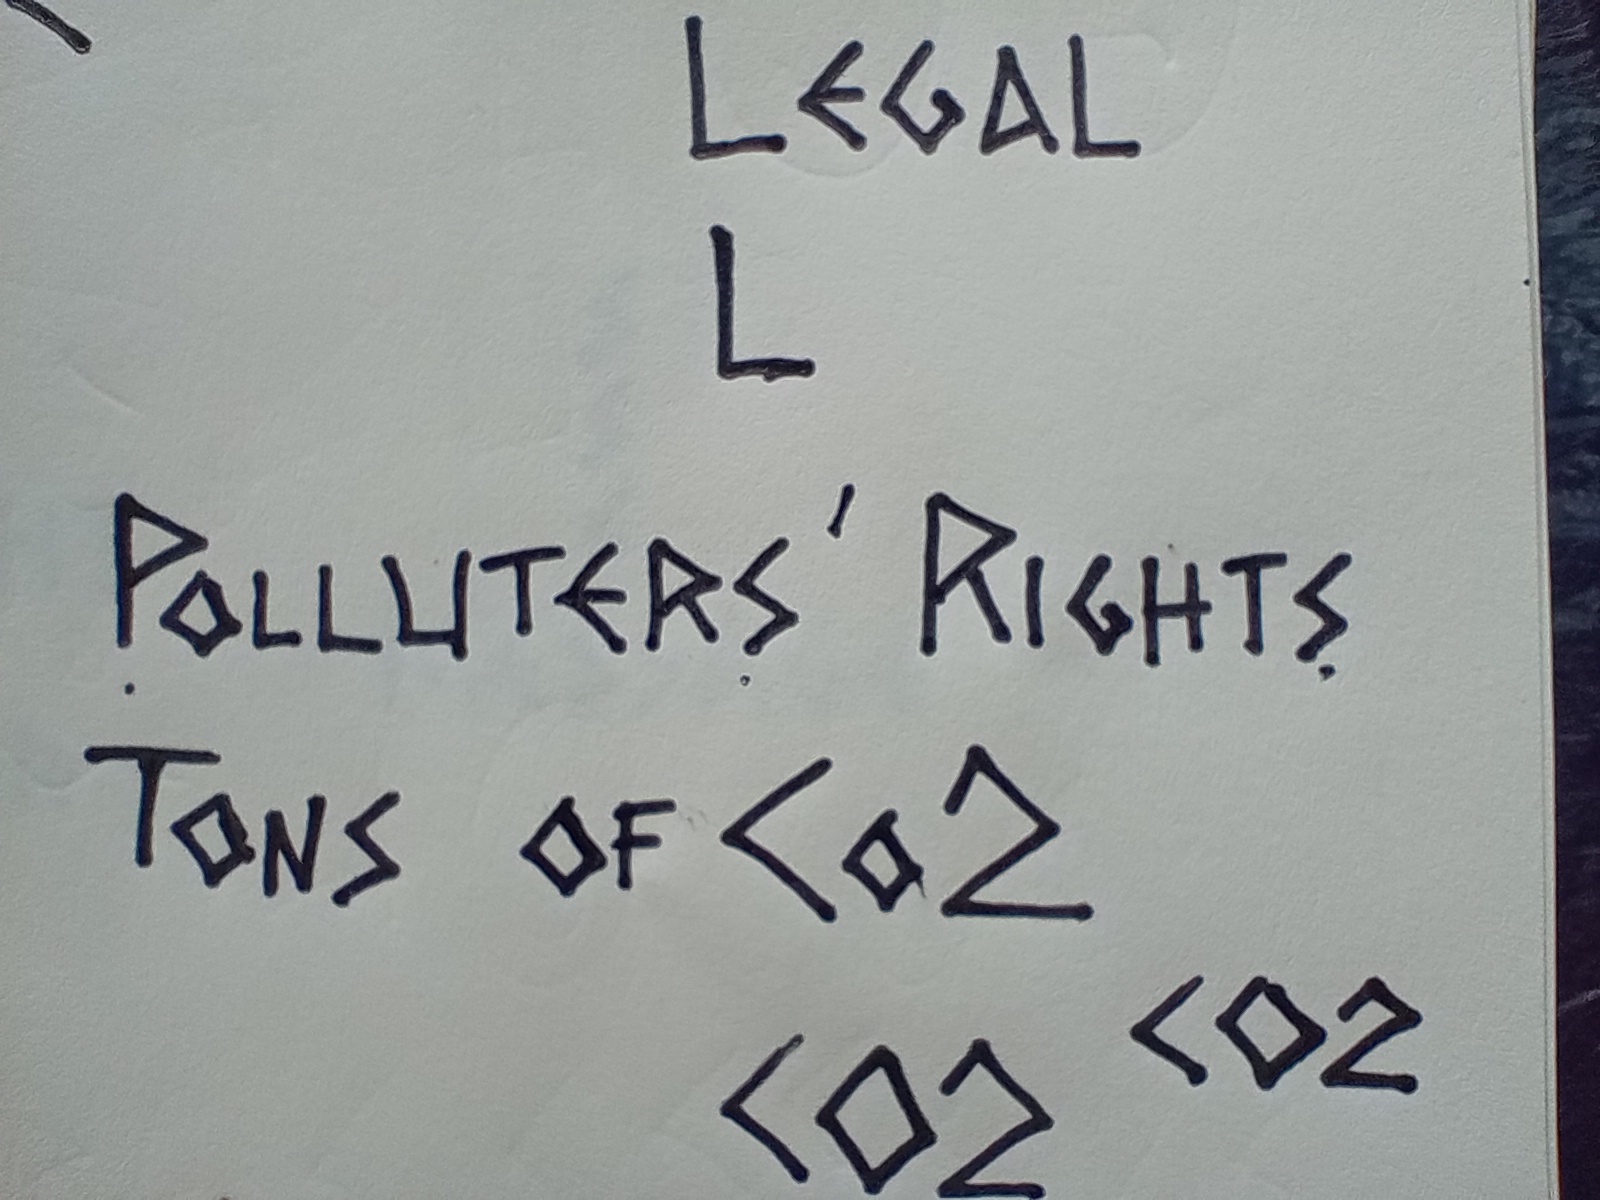 LEGAL
L
POLLUTERS' RIGHTS
TONS OF CO2
CO2 CO2